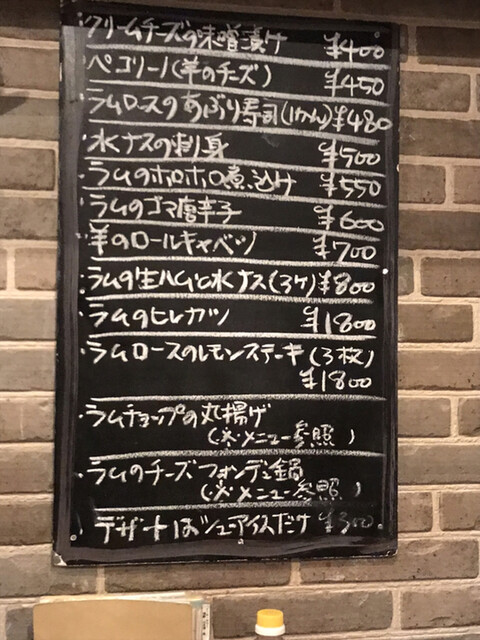 ・クリームチーズの味噌漬け ¥400
・ペコリーノ(羊のチーズ) ¥450
・ラムロースのあぶり寿司(1かん)¥480
・水ナスの刺身 ¥500
・ラムのホロホロ煮込け ¥550
・ラムのゴマ唐辛子 ¥600
・羊のロールキャベツ ¥700
・ラムの生ハムと水ナス(3ケ)¥800
・ラムのヒレカツ ¥1800
・ラムロースのレモンステーキ(3枚)
¥1800
・ラムチョップの丸揚げ
(※メニュー参照)
・ラムのチーズフォンデュ鍋
(※メニュー参照)
・デザートはシューアイスだけ ¥300